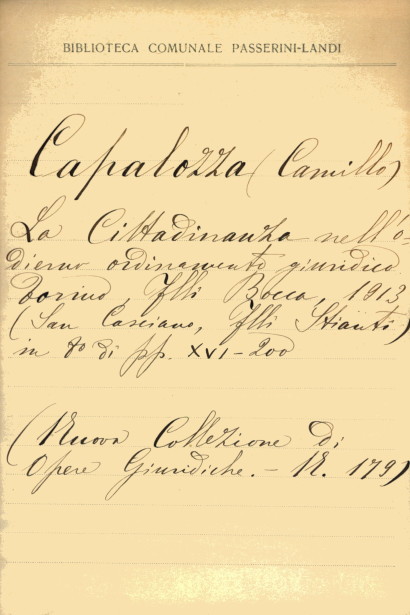 BIBLIOTECA COMUNALE PASSERINI-LANDI
Capalozza (Camillo)
La Cittadinanza nell'o-
dierno ordinamento giuridico
Torino, Flli Bocca, 1913
(San Casciano, Flli Stianti)
in 8º di pp. XVI-200
(Nuova Collezione di
Opere Giuridiche. - N. 179)